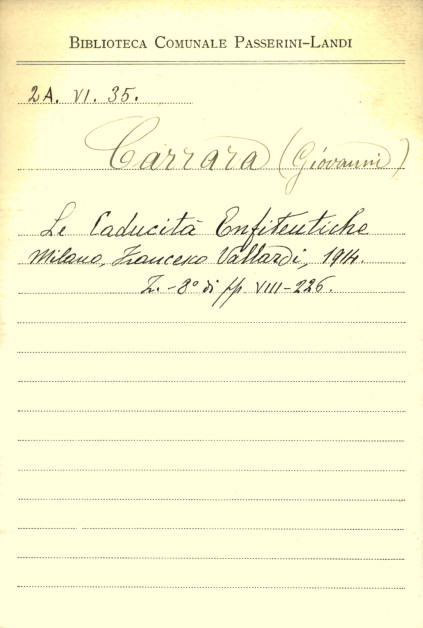 BIBLIOTECA COMUNALE PASSERINI-LANDI
2A. VI. 35.
Carrara (Giovanni)
Le Caducità Enfiteutiche
Milano, Francesco Vallardi, 1914.
I.-8º di pp VIII-226.